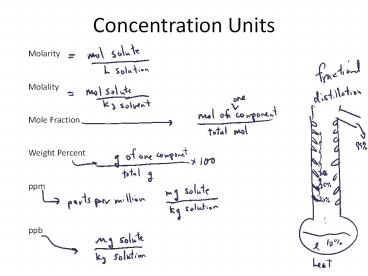 Concentration Units
Molarity = mol solute / L solution
Molality = mol solute / kg solvent
Mole Fraction → mol of one component / total mol
Weight Percent → g of one component / total g × 100
ppm → parts per million mg solute / kg solution
ppb → mg solute / kg solution
fractional
distillation
10%
Heat